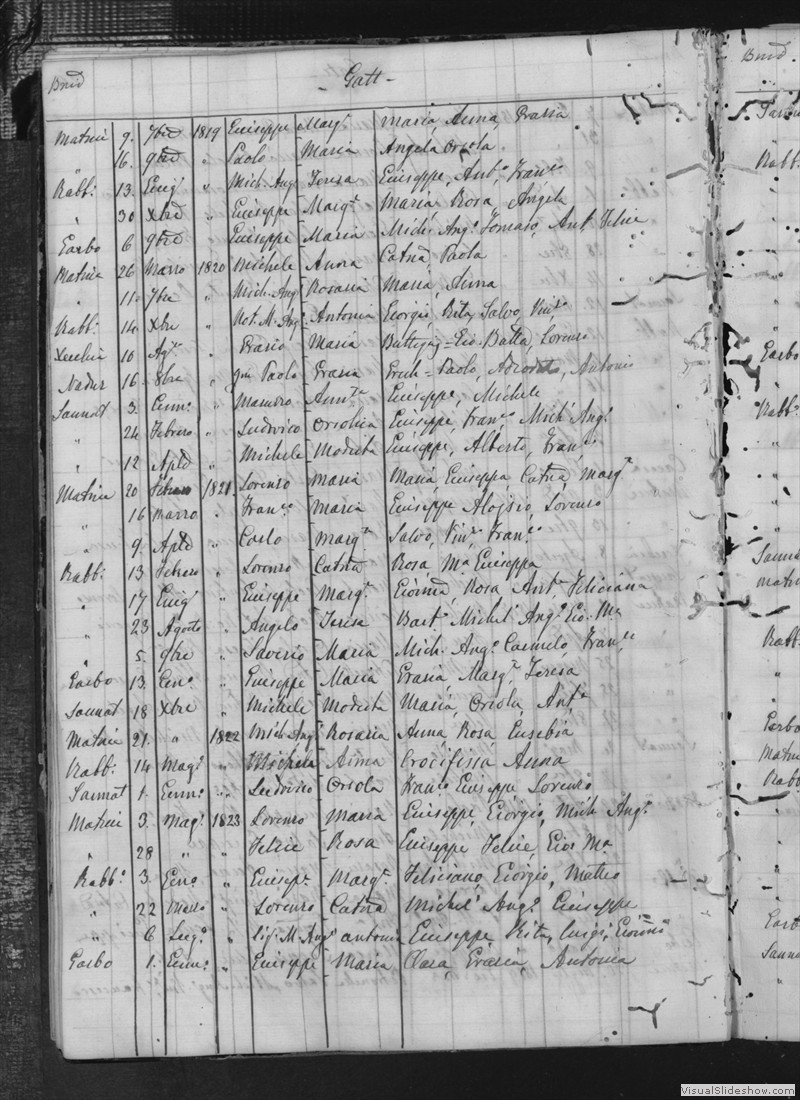 Bnid Gatt
Matrice 9. 7bre 1819 Giuseppe Margª Maria, Anna, Grazia
" 16. 9bre " Paolo Maria Angela Orsola
Rabbº 13. " Mich. Ang. Teresa Giuseppe, Antº, Francº
" 30 Xbre " Giuseppe Margª Maria Rosa, Angela
Garbo 6 9bre " Giuseppe Maria Mich: Angº Tomaso, Antº Felice
Matrice 26 Marzo 1820 Michele Anna Catna, Paola
" 11. 7bre " Mich. Ang Rosaria Maria, Anna
Rabb: 14. Xbre " Not. M. Ang. Antonia Giorgio, Rita, Salvo, Vinº
Xeuchia 10 Agº " Grazio Maria Gio. Batta, Lorenzo
Nadur 16. 8bre " qm Paolo Grazia Paolo, Adeodato, Antonio
Sannat 3. Genn: " Giuseppe, Michele
" 24 Febraro " Ludovico Orsolica Giuseppe, Franc., Mich. Angº
" 12 Aple " Michele Modesta Giuseppe, Alberto, Franc:
Matrice 20 Febraro 1821. Lorenzo Maria Maria, Giuseppa Catna, Margª
" 16 Marzo " Francº Maria Giuseppe Aloisio, Lorenzo
" 9. Aple " Carlo Margª Salvo, Vinº, Francº
Rabb: 13 Febraro " Lorenzo Catna Rosa, Mª Giuseppa
" 17 Giugº " Giuseppe Margª Giovna, Rosa, Antª Feliciana
" 23 Agosto " Angelo Teresa Bartº Michel' Angº Gio. Mª
" 5. 9bre " Saverio Maria Mich. Angº Carmelo, Francº
Garbo 13. Genº " Giuseppe Maria Grazia, Margª, Teresa
Sannat 18 Xbre " Michele Modesta Maria, Orsola, Antª
Matrice 21. " 1822 Mich. Ang: Rosaria Anna, Rosa, Eusebia
Rabb: 14 Magº " Michele Anna Crocifissa Anna
Sannat 1. Genn: " Ludovico Orsola Franc: Giuseppe, Lorenzo
Matrice 3. Magº 1823 Lorenzo Maria Giuseppe, Giorgio, Mich Angº
" 28 " " Felice Rosa Giuseppe Felice, Gio: Mª
Rabbº 3. Genº " Giusepe. Margª Feliciano, Giorgio, Matteo
" 22 Marzo " Lorenzo Catna Michel' Angº Giuseppe
" 6 Lugº " Sigr M. Angº Antonia Giuseppe, Rita, Luigi, Giovni
Garbo 1. Genn: " Giuseppe Maria Clara, Grazia, Antonia
Bnid.
Rabb:
Garbo
Rabb:
Sannat
Matrice
Rabb:
Garbo
Matrice
Rabb
Garb
Sanna
VisualSlideshow.com